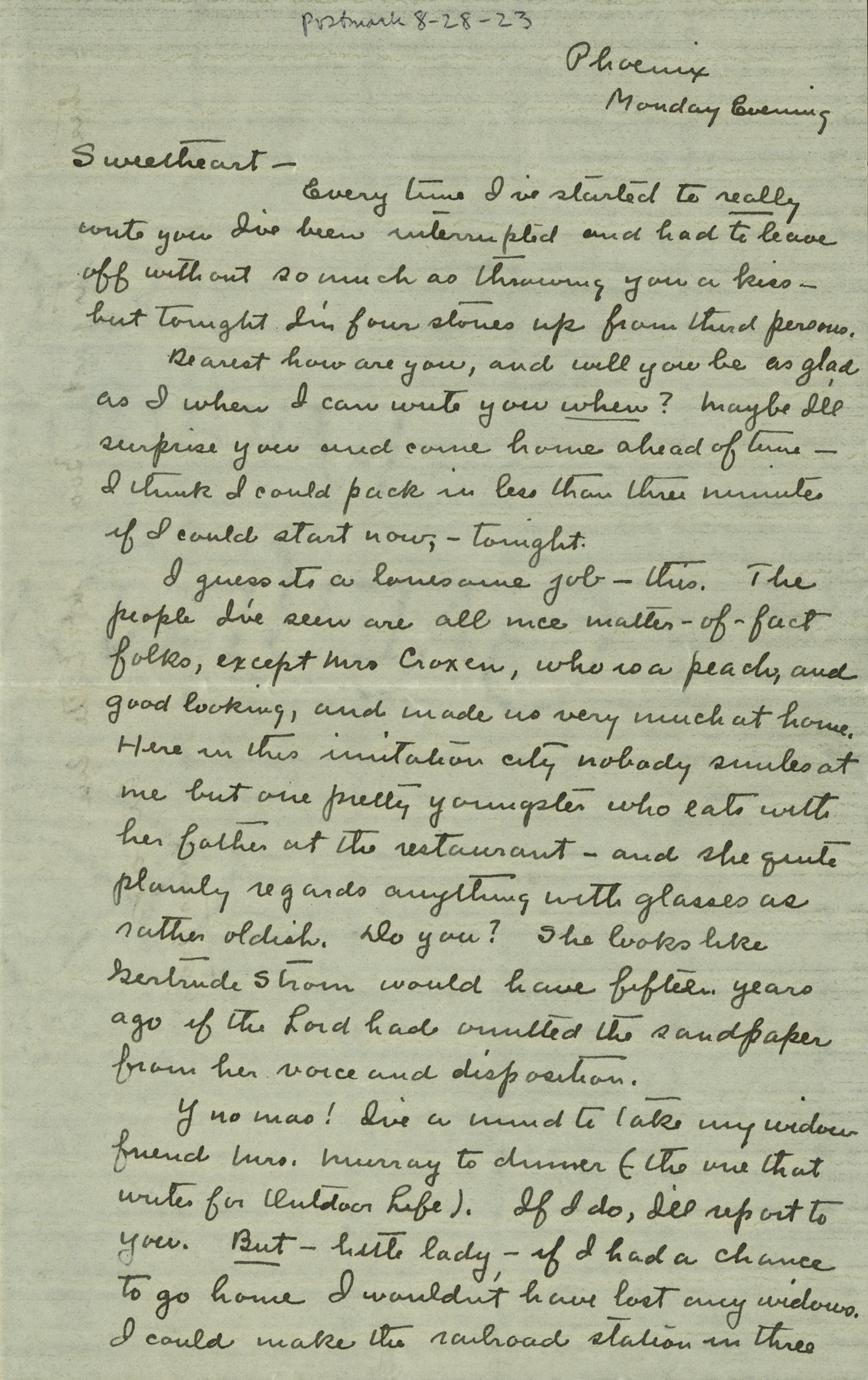 postmark 8-28-23
Phoenix
Monday Evening
Sweetheart —
Every time I've started to really
write you I've been interrupted and had to leave
off without so much as throwing you a kiss —
but tonight I'm four stories up from third persons.
Dearest how are you, and will you be as glad
as I when I can write you when? Maybe I'll
surprise you and come home ahead of time —
I think I could pack in less than three minutes
if I could start now, – tonight.
I guess its a lonesome job – this. The
people I've seen are all nice matter-of-fact
folks, except Mrs Croxen, who is a peach, and
good looking, and made us very much at home.
Here in this imitation city nobody smiles at
me but one pretty youngster who eats with
her father at the restaurant – and she quite
plainly regards anything with glasses as
rather oldish. Do you? She looks like
Gertrude Strom would have fifteen years
ago if the Lord had omitted the sandpaper
from her voice and disposition.
Y no mas! I've a mind to take my widow
friend Mrs. Murray to dinner (the one that
writes for Outdoor Life). If I do, I'll report to
you. But – little lady, – if I had a chance
to go home I wouldn't have lost any widows.
I could make the railroad station in three